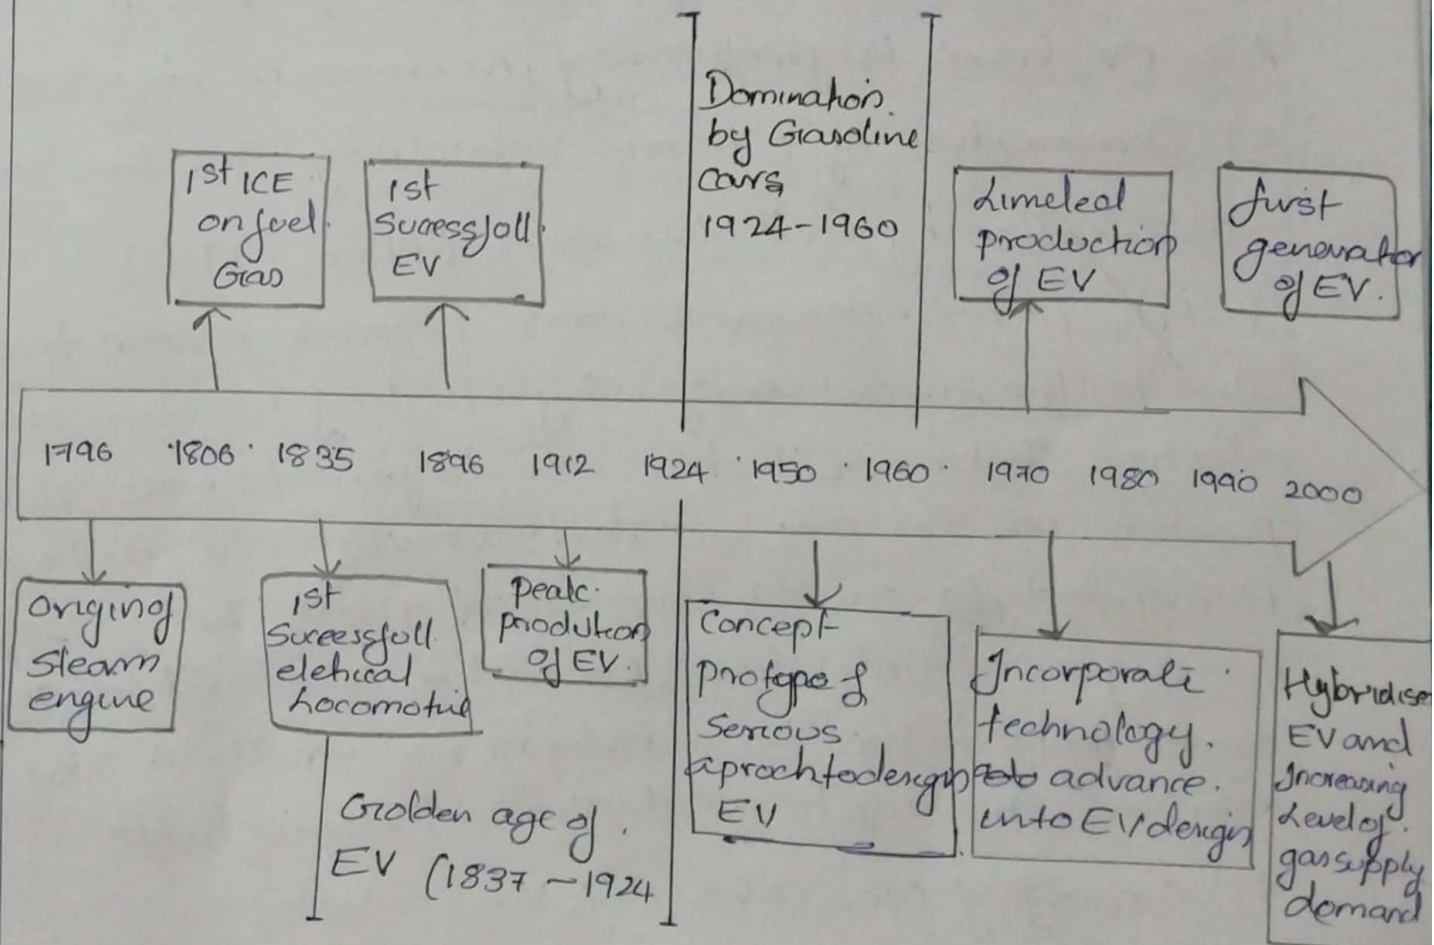 Domination
by Gasoline
cars
1924-1960
1st ICE
on fuel
Gas
1st
Sucessfoll
EV
Limeled
production
of EV
first
generator
of EV.
1796 1806 1835 1896 1912 1924 1950 1960 1970 1980 1990 2000
Origin of
Steam
engine
1st
Successfoll
eletrical
Locomotive
Peak
Prodution
of EV.
Concept
Protope of
Serious
aproch to design
EV
Incorporate
technology.
advance.
into EV design
Hybridise
EV and
Increasing
Level of
gas supply
demand
Golden age of
EV (1837-1924